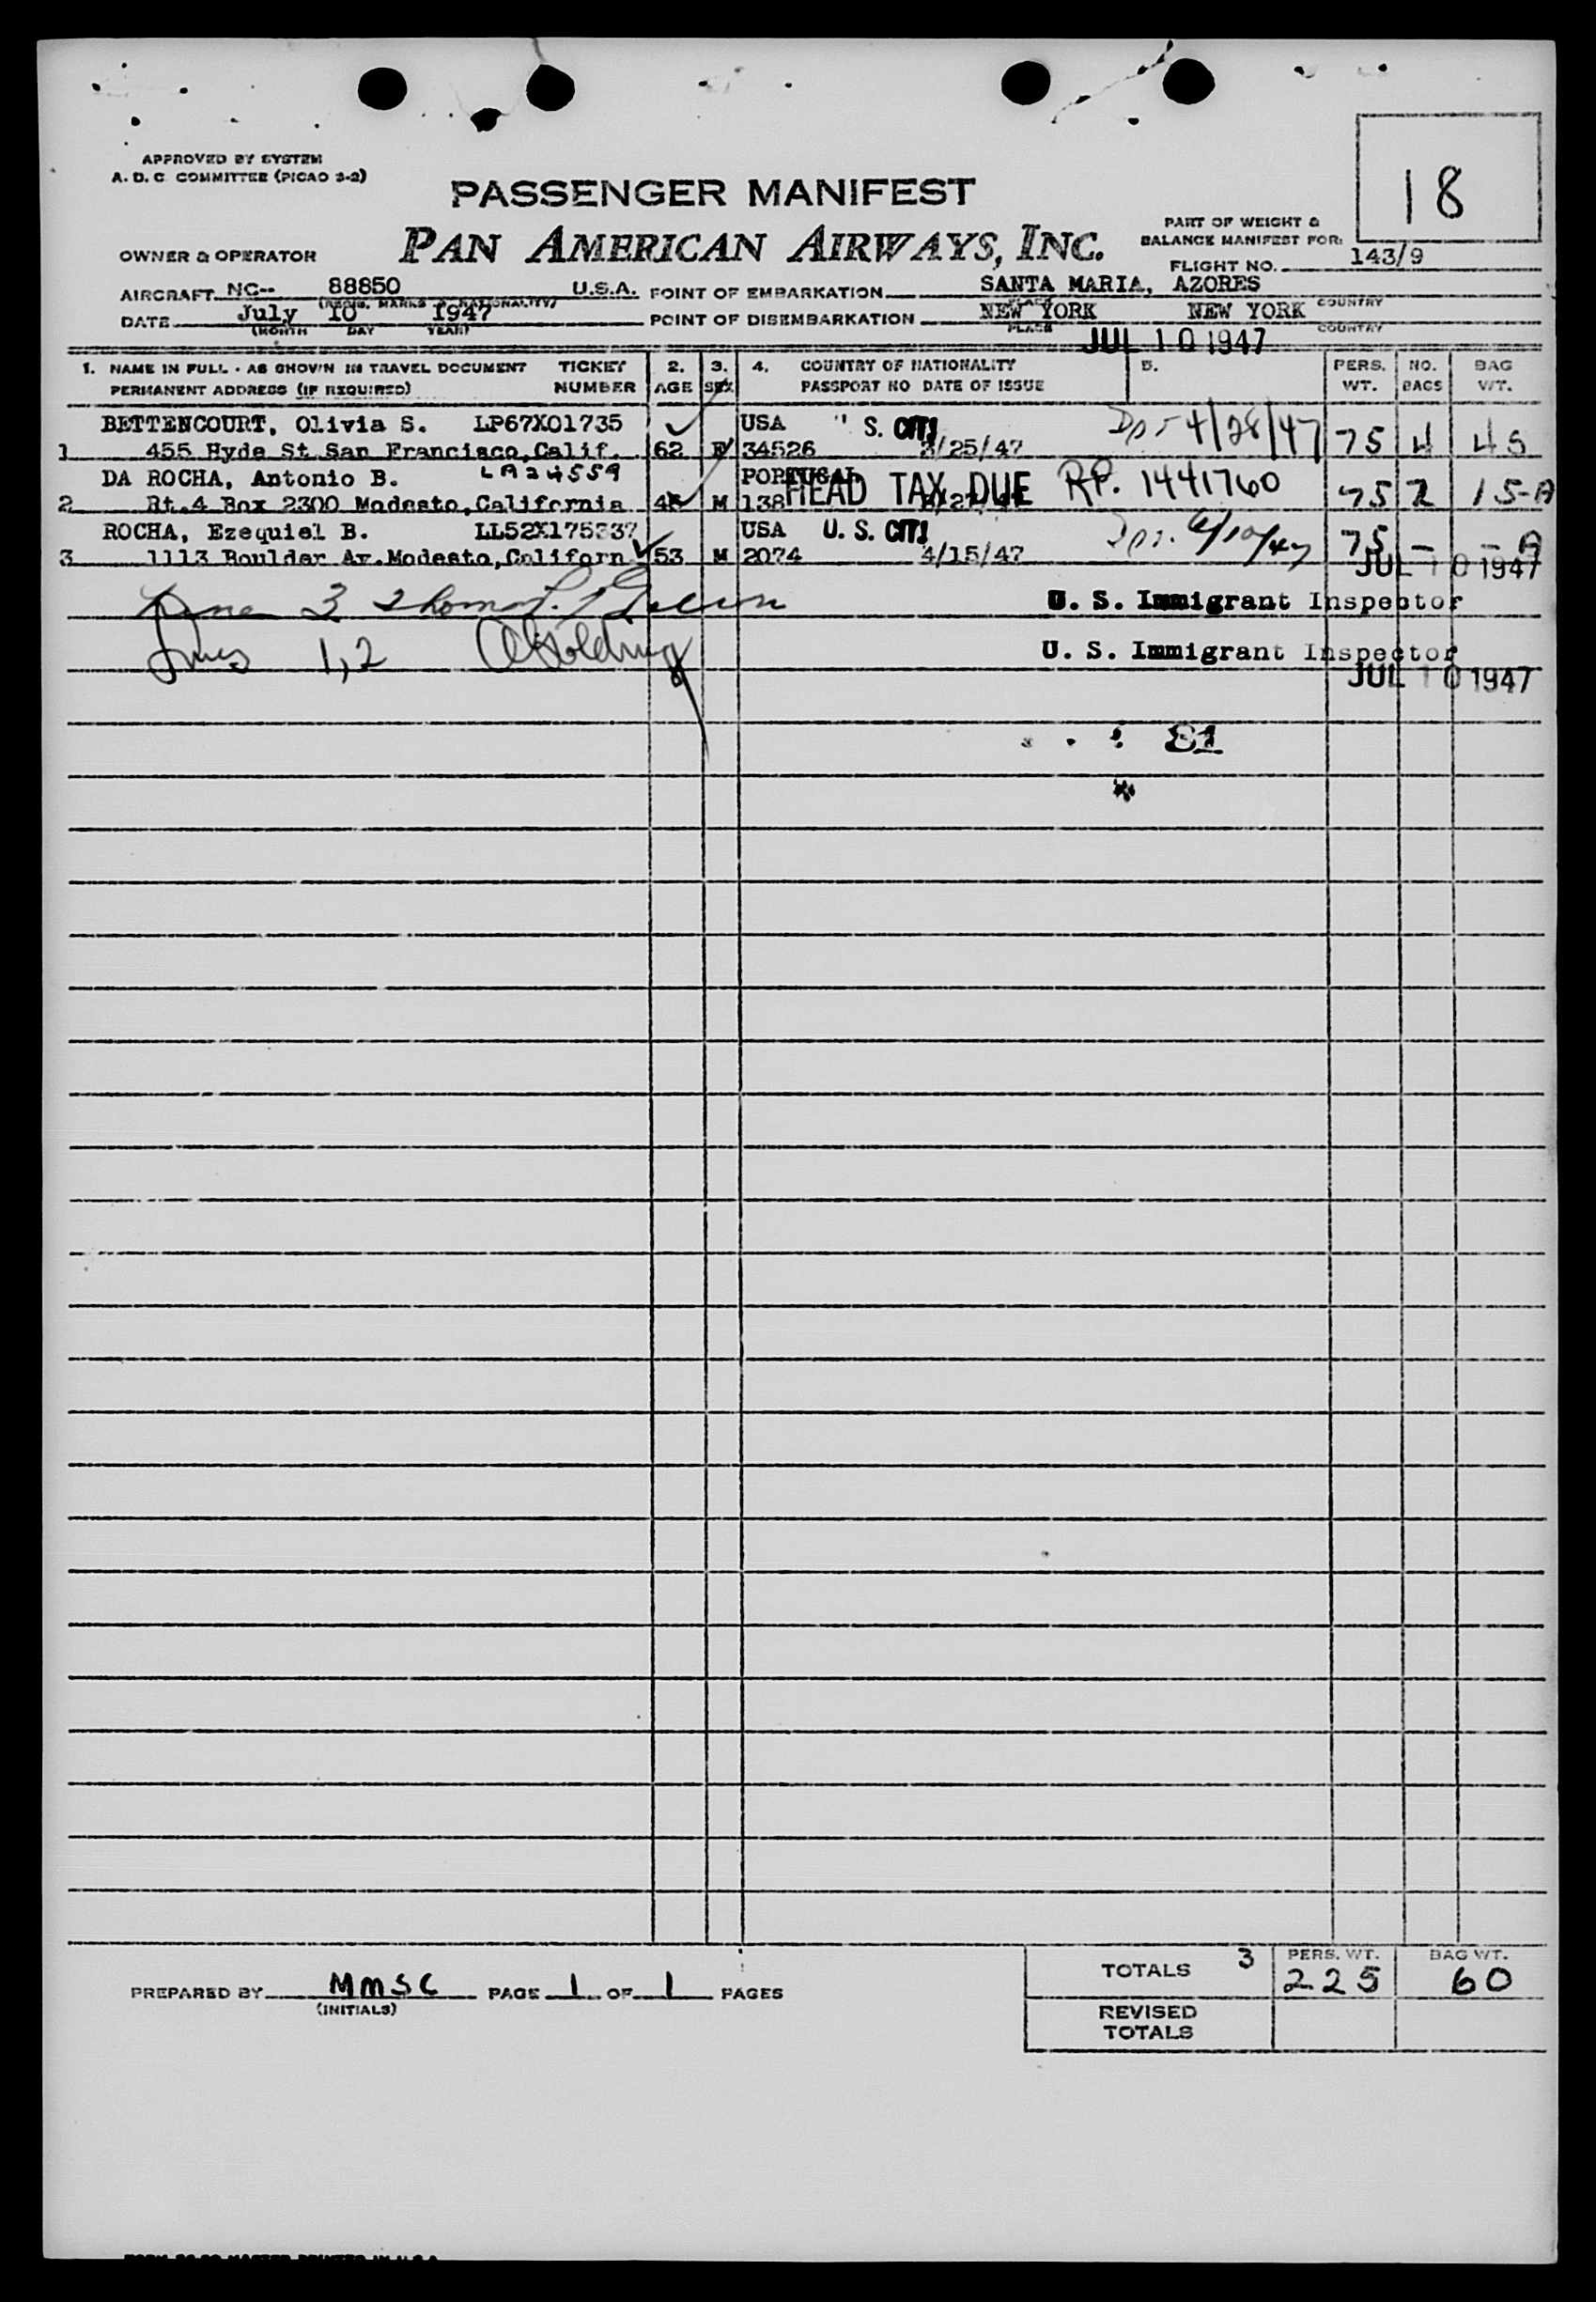 18
APPROVED BY SYSTEM
A. D. C COMMITTEE (PICAO 3-2)
PASSENGER MANIFEST
PART OF WEIGHT &
BALANCE MANIFEST FOR:
OWNER & OPERATOR PAN AMERICAN AIRWAYS, INC.
FLIGHT NO. 143/9
AIRCRAFT NC-- 88850 U.S.A. POINT OF EMBARKATION SANTA MARIA, AZORES
(REGIS. MARKS & NATIONALITY) PLACE COUNTRY
DATE July 10 1947 POINT OF DISEMBARKATION NEW YORK NEW YORK
(MONTH DAY YEAR) PLACE COUNTRY
JUL 10 1947
1. NAME IN FULL - AS SHOWN IN TRAVEL DOCUMENT TICKET 2. 3. 4. COUNTRY OF NATIONALITY 5. PERS. NO. BAG
PERMANENT ADDRESS (IF REQUIRED) NUMBER AGE SEX PASSPORT NO DATE OF ISSUE WT. BAGS WT.
BETTENCOURT, Olivia S. LP67X01735 USA S. CITI 4/28/47 75 4 45
1 455 Hyde St San Francisco, Calif. 62 F 34526 3/25/47
DA ROCHA, Antonio B. LA24559 PORTUGAL HEAD TAX DUE RP. 1441760 75 2 15-A
2 Rt.4 Box 2300 Modesto, California M 138
ROCHA, Ezequiel B. LL52X175337 USA U. S. CITI 75 - - A
3 1113 Boulder Av. Modesto, Californ 53 M 2074 4/15/47
JUL 10 1947
3 U. S. Immigrant Inspector
Lines 1,2 U. S. Immigrant Inspector
JUL 10 1947
81
TOTALS 3 PERS. WT. BAG WT.
225 60
PREPARED BY MMSC PAGE 1 OF 1 PAGES
(INITIALS)
REVISED
TOTALS